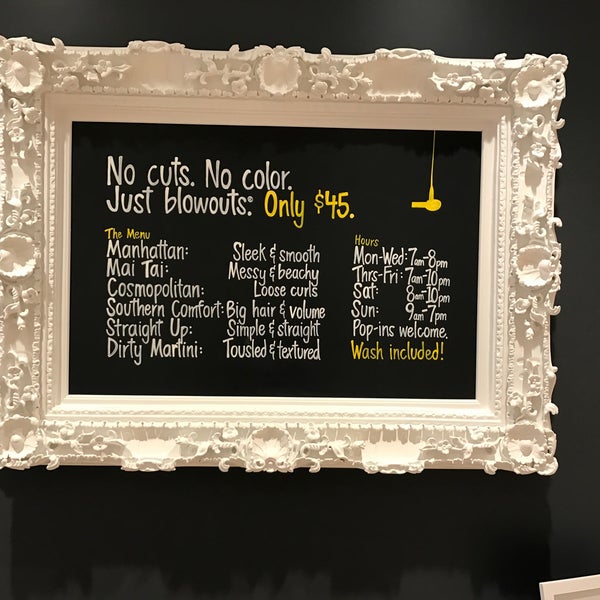 No cuts. No color.
Just blowouts: Only $45.
The Menu
Manhattan: Sleek & smooth
Mai Tai: Messy & beachy
Cosmopolitan: Loose curls
Southern Comfort: Big hair & volume
Straight Up: Simple & straight
Dirty Martini: Tousled & textured
Hours
Mon-Wed: 7am-8pm
Thrs-Fri: 7am-10pm
Sat: 8am-10pm
Sun: 9am-7pm
Pop-ins welcome.
Wash included!